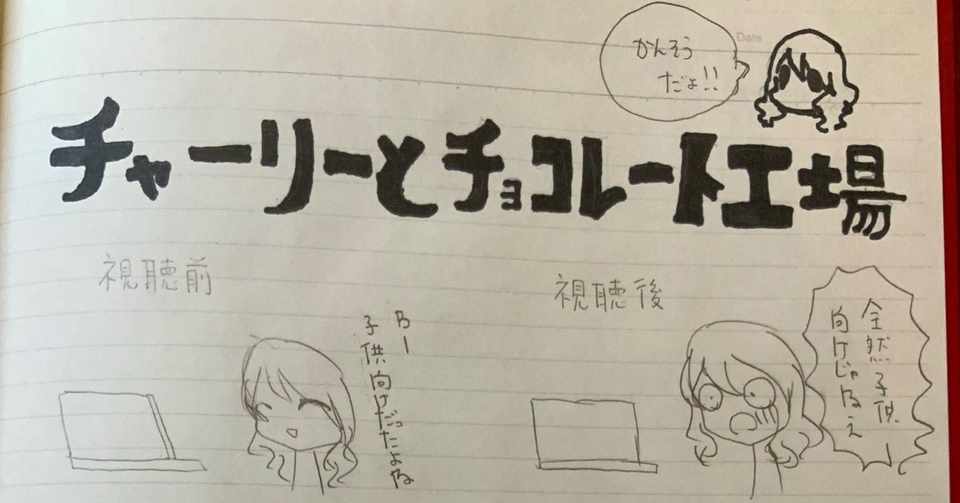 Date
かんそう
だよ!!
チャーリーとチョコレート工場
視聴前
子供向けだったよな
視聴後
全然子供
向けじゃねえ